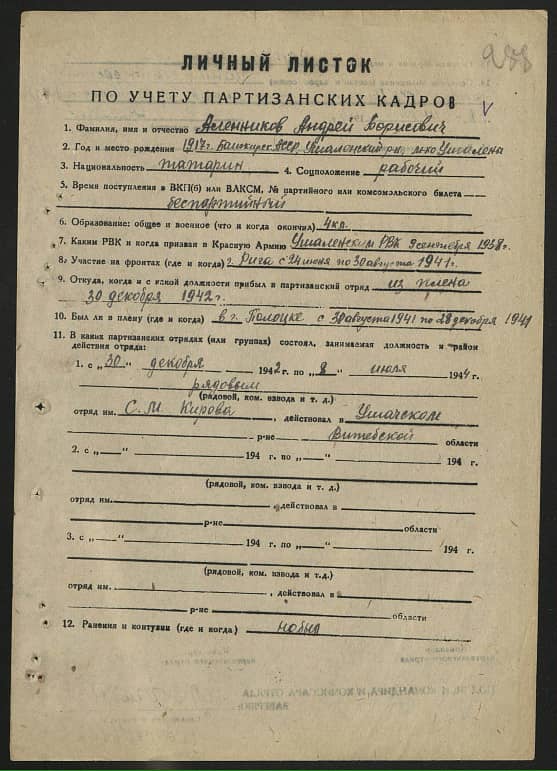 ЛИЧНЫЙ ЛИСТОК
ПО УЧЕТУ ПАРТИЗАНСКИХ КАДРОВ
1. Фамилия, имя и отчество Асленников Андрей Борисович
2. Год и место рождения 1917г. Башкирск. АССР,
3. Национальность татарин 4. Соцположение рабочий
5. Время поступления в ВКП(б) или ВЛКСМ, № партийного или комсомольского билета
беспартийный
6. Образование: общее и военное (что и когда окончил) 4кл.
7. Каким РВК и когда призван в Красную Армию РВК 9 сентября 1938г.
8. Участие на фронтах (где и когда) г. Рига с 24 июня по 30 августа 1941г.
9. Откуда, когда и с какой должности прибыл в партизанский отряд из плена
30 декабря 1942г.
10. Был ли в плену (где и когда) в г. Полоцке с 30 августа 1941 по 28 декабря 1941
11. В каких партизанских отрядах (или группах) состоял, занимаемая должность и район
действия отряда:
1. с „30" декабря 1942 г. по „8" июля 1944 г.
рядовым
(рядовой, ком. взвода и т. д.)
отряд им. С. М. Кирова, действовал в Ушачском
р-не Витебской области
2. с „ " 194 г. по „ " 194 г.
(рядовой, ком. взвода и т. д.)
отряд им. , действовал в
р-не области
3. с „ " 194 г. по „ " 194 г.
(рядовой, ком. взвода и т.д.)
отряд им. , действовал в
р-не области
12. Ранения и контузии (где и когда)